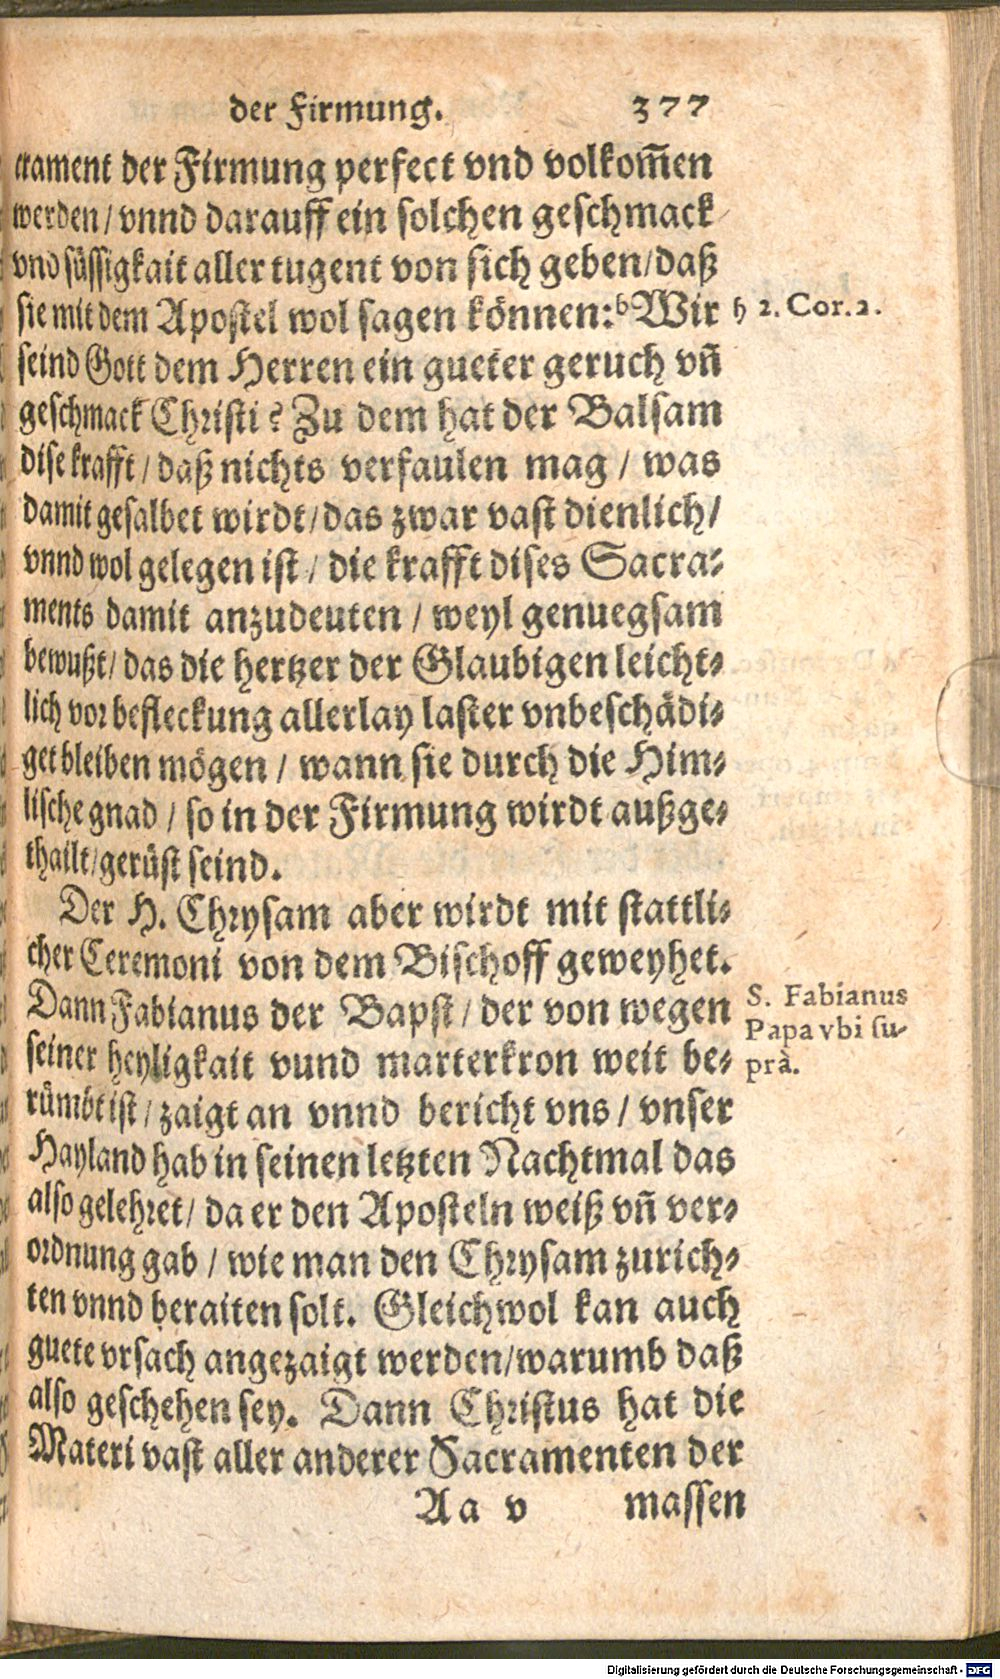 der Firmung. 377
crament der Firmung perfect vnd volkom̃en
werden / vnnd darauff ein solchen geschmack
vnd süssigkait aller tugent von sich geben/daß
sie mit dem Apostel wol sagen können: ᵇ Wir
h 2. Cor. 2.
seind Gott dem Herren ein gueter geruch vñ
geschmack Christi? Zu dem hat der Balsam
dise krafft / daß nichts verfaulen mag / was
damit gesalbet wirdt / das zwar vast dienlich /
vnnd wol gelegen ist / die krafft dises Sacra⸗
ments damit anzudeuten / weyl genuegsam
bewußt / das die hertzer der Glaubigen leicht⸗
lich vor befleckung allerlay laster vnbeschädi⸗
get bleiben mögen / wann sie durch die Him⸗
lische gnad / so in der Firmung wirdt außge⸗
thailt / gerüst seind.
Der H. Chrysam aber wirdt mit stattli⸗
cher Ceremoni von dem Bischoff geweyhet.
Dann Fabianus der Bapst / der von wegen
seiner heyligkait vund marterkron weit be⸗
rümbt ist / zaigt an vnnd bericht vns / vnser
Hayland hab in seinen letzten Nachtmal das
also gelehret / da er den Aposteln weiß vñ ver⸗
ordnung gab / wie man den Chrysam zurich⸗
ten vnnd beraiten solt. Gleichwol kan auch
guete vrsach angezaigt werden/warumb daß
also geschehen sey. Dann Christus hat die
Materi vast aller anderer Sacramenten der
S. Fabianus
Papa vbi su-
prà.
Aa v massen
Digitalisierung gefördert durch die Deutsche Forschungsgemeinschaft - DFG